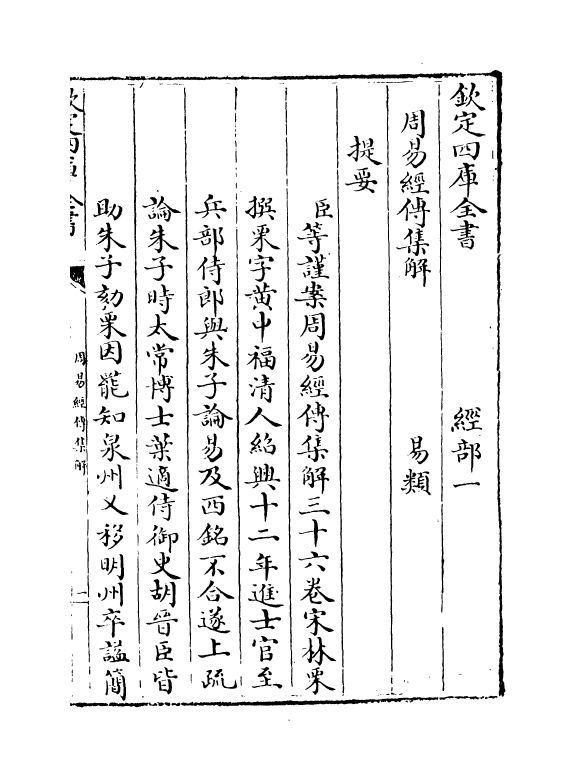 欽定四庫全書　　　經部一
周易經傳集解　　　易類
提要
臣等謹案周易經傳集解三十六卷宋林栗
撰栗字黄中福清人紹興十二年進士官至
兵部侍郎與朱子論易及西銘不合遂上疏
論朱子時太常博士葉適侍御史胡晉臣皆
助朱子劾栗因罷知泉州又移明州卒諡簡
欽定四庫全書
周易經傳集解
一